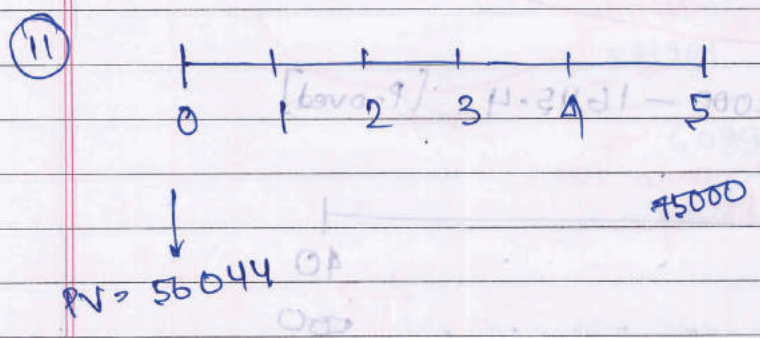 11
0 1 2 3 4 5
75000
PV = 56044